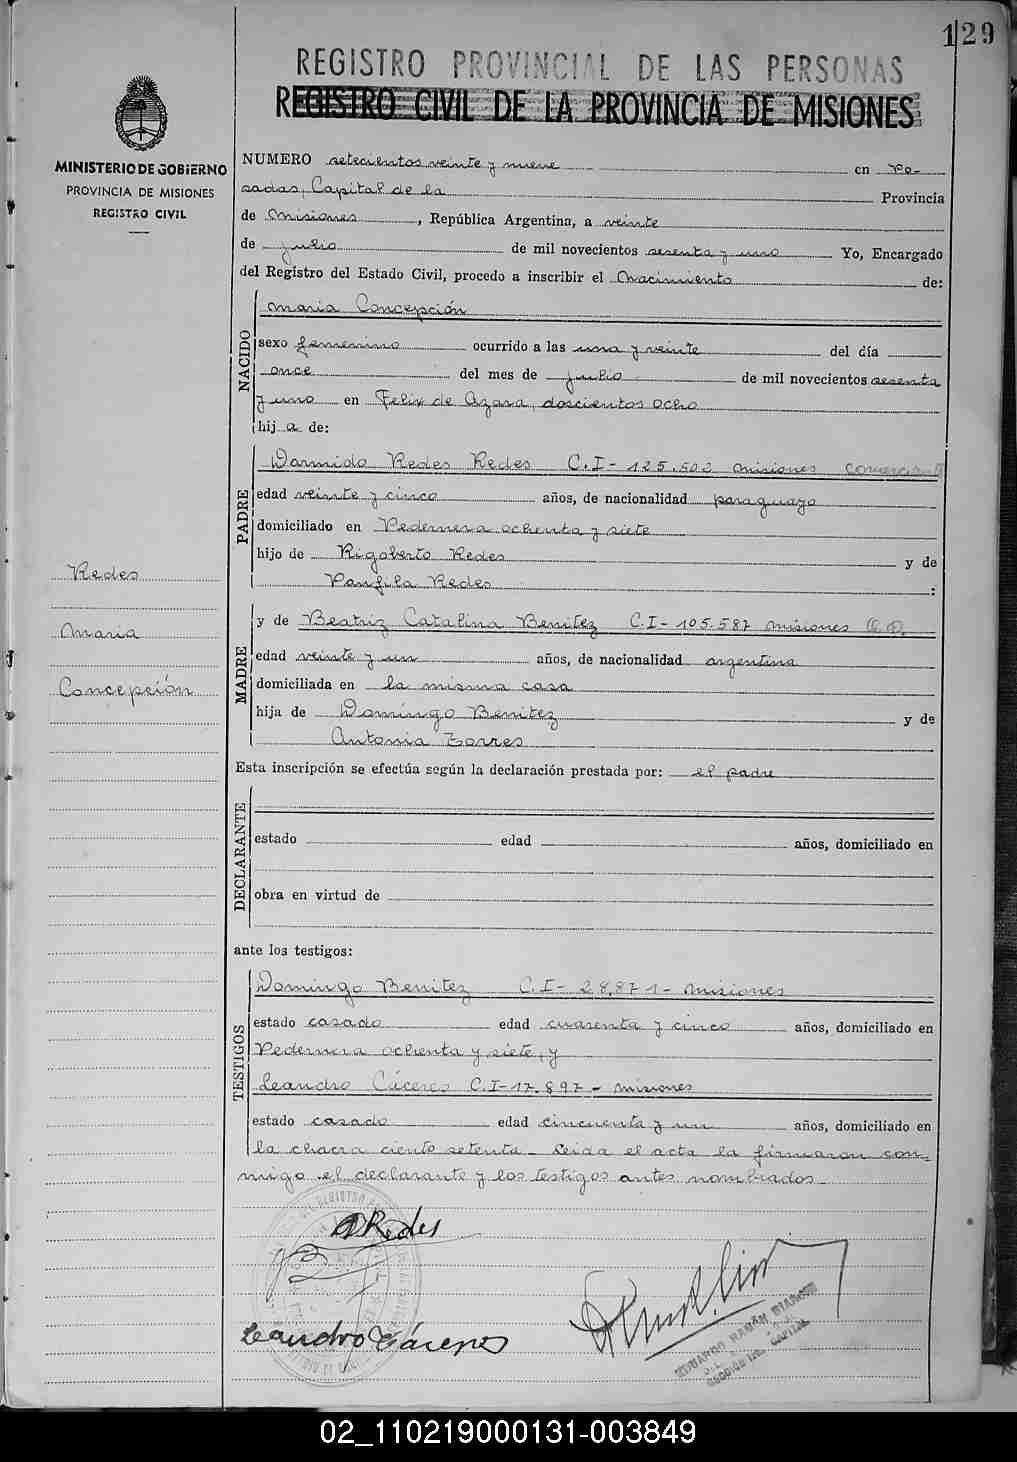 129
REGISTRO PROVINCIAL DE LAS PERSONAS
REGISTRO CIVIL DE LA PROVINCIA DE MISIONES
MINISTERIO DE GOBIERNO
PROVINCIA DE MISIONES
REGISTRO CIVIL
NUMERO setecientos veinte y nueve en Po-
sadas, Capital de la Provincia
de Misiones, República Argentina, a veinte
de julio de mil novecientos sesenta y uno Yo, Encargado
del Registro del Estado Civil, procedo a inscribir el Nacimiento de:
NACIDO
Maria Concepción
sexo femenino ocurrido a las una y veinte del día
once del mes de julio de mil novecientos sesenta
y uno en Felix de Azara, doscientos ocho
hij a de:
PADRE
Darmido Redes Redes C.I- 125.502 Misiones comerciante
edad veinte y cinco años, de nacionalidad paraguayo
domiciliado en Pedernera ochenta y siete
hijo de Rigoberto Redes y de
Panfila Redes :
Redes
Maria
Concepción
MADRE
y de Beatriz Catalina Benitez C.I- 105.587 Misiones Q.D.
edad veinte y un años, de nacionalidad argentina
domiciliada en la misma casa
hija de Domingo Benitez y de
Antonia Torres
Esta inscripción se efectúa según la declaración prestada por: el padre
DECLARANTE
estado edad años, domiciliado en
obra en virtud de
ante los testigos:
TESTIGOS
Domingo Benitez C.I- 28.871- Misiones
estado casado edad cuarenta y cinco años, domiciliado en
Pedernera ochenta y siete, y
Leandro Cáceres C.I-17.897- Misiones
estado casado edad cincuenta y un años, domiciliado en
la chacra ciento setenta- Leida el acta la firmaron con-
migo el declarante y los testigos antes nombrados
Redes
Leandro Cáceres
EDUARDO RAMÓN
CAPITAL
02_110219000131-003849